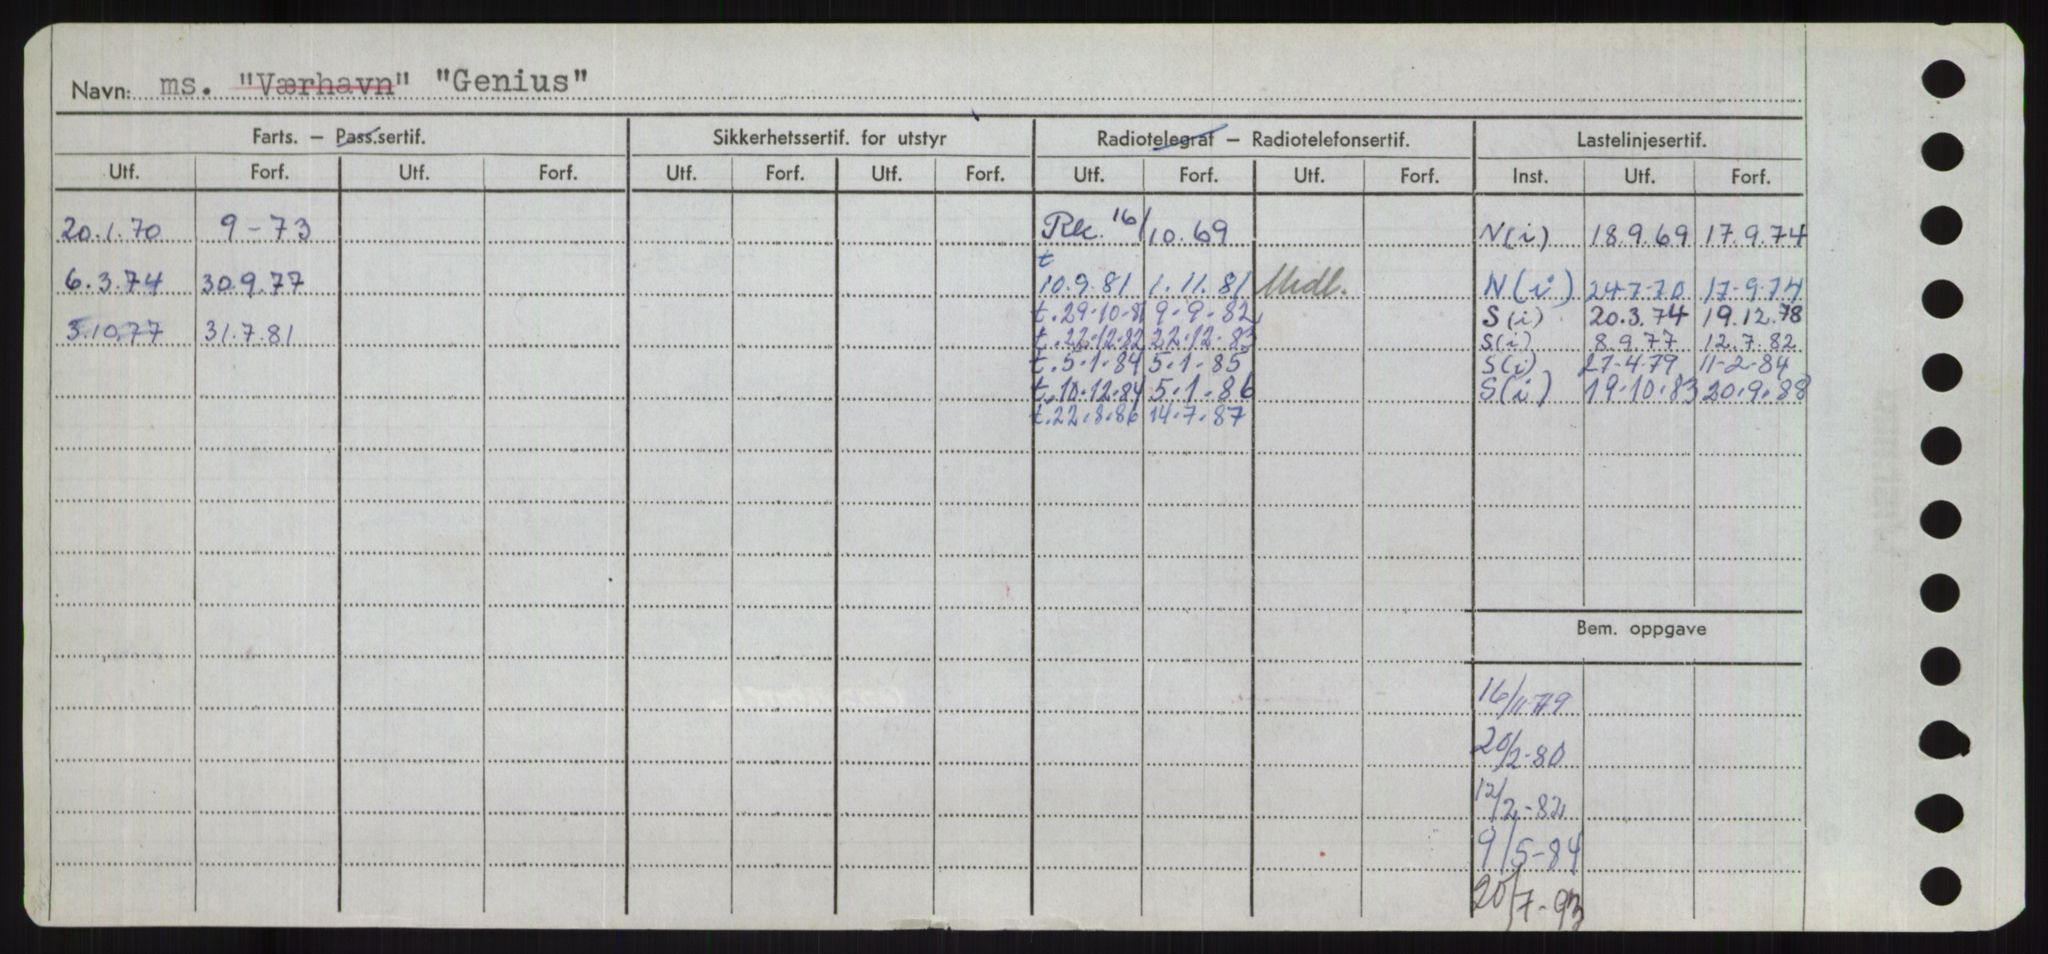 Navn: ms. "Værhavn" "Genius"
Farts. — Pass.sertif. Sikkerhetssertif. for utstyr Radiotelegraf — Radiotelefonsertif. Lastelinjesertif.
Utf. Forf. Utf. Forf. Utf. Forf. Utf. Forf. Utf. Forf. Utf. Forf. Inst. Utf. Forf.
20.1.70 9-73 Rec. 16/10.69 N(i) 18.9.69 17.9.74
t
6.3.74 30.9.77 10.9.81 1.11.81 Midl. N(i) 24-7-70 17-9-74
t.29-10-81 9-9-82 S(i) 20.3.74 19.12.78
3.10.77 31.7.81 t.22.12.82 22.12.83 S(i) 8.9.77 12.7.82
t.5.1.84 5.1.85 S(i) 27-4-79 11-2-84
t.10.12.84 5.1.86 S(i) 19.10.83 20.9.88
t.22.8.86 14.7.87
Bem. oppgave
16/11-79
20/2-80
12/2-82
9/5-84
20/7-93